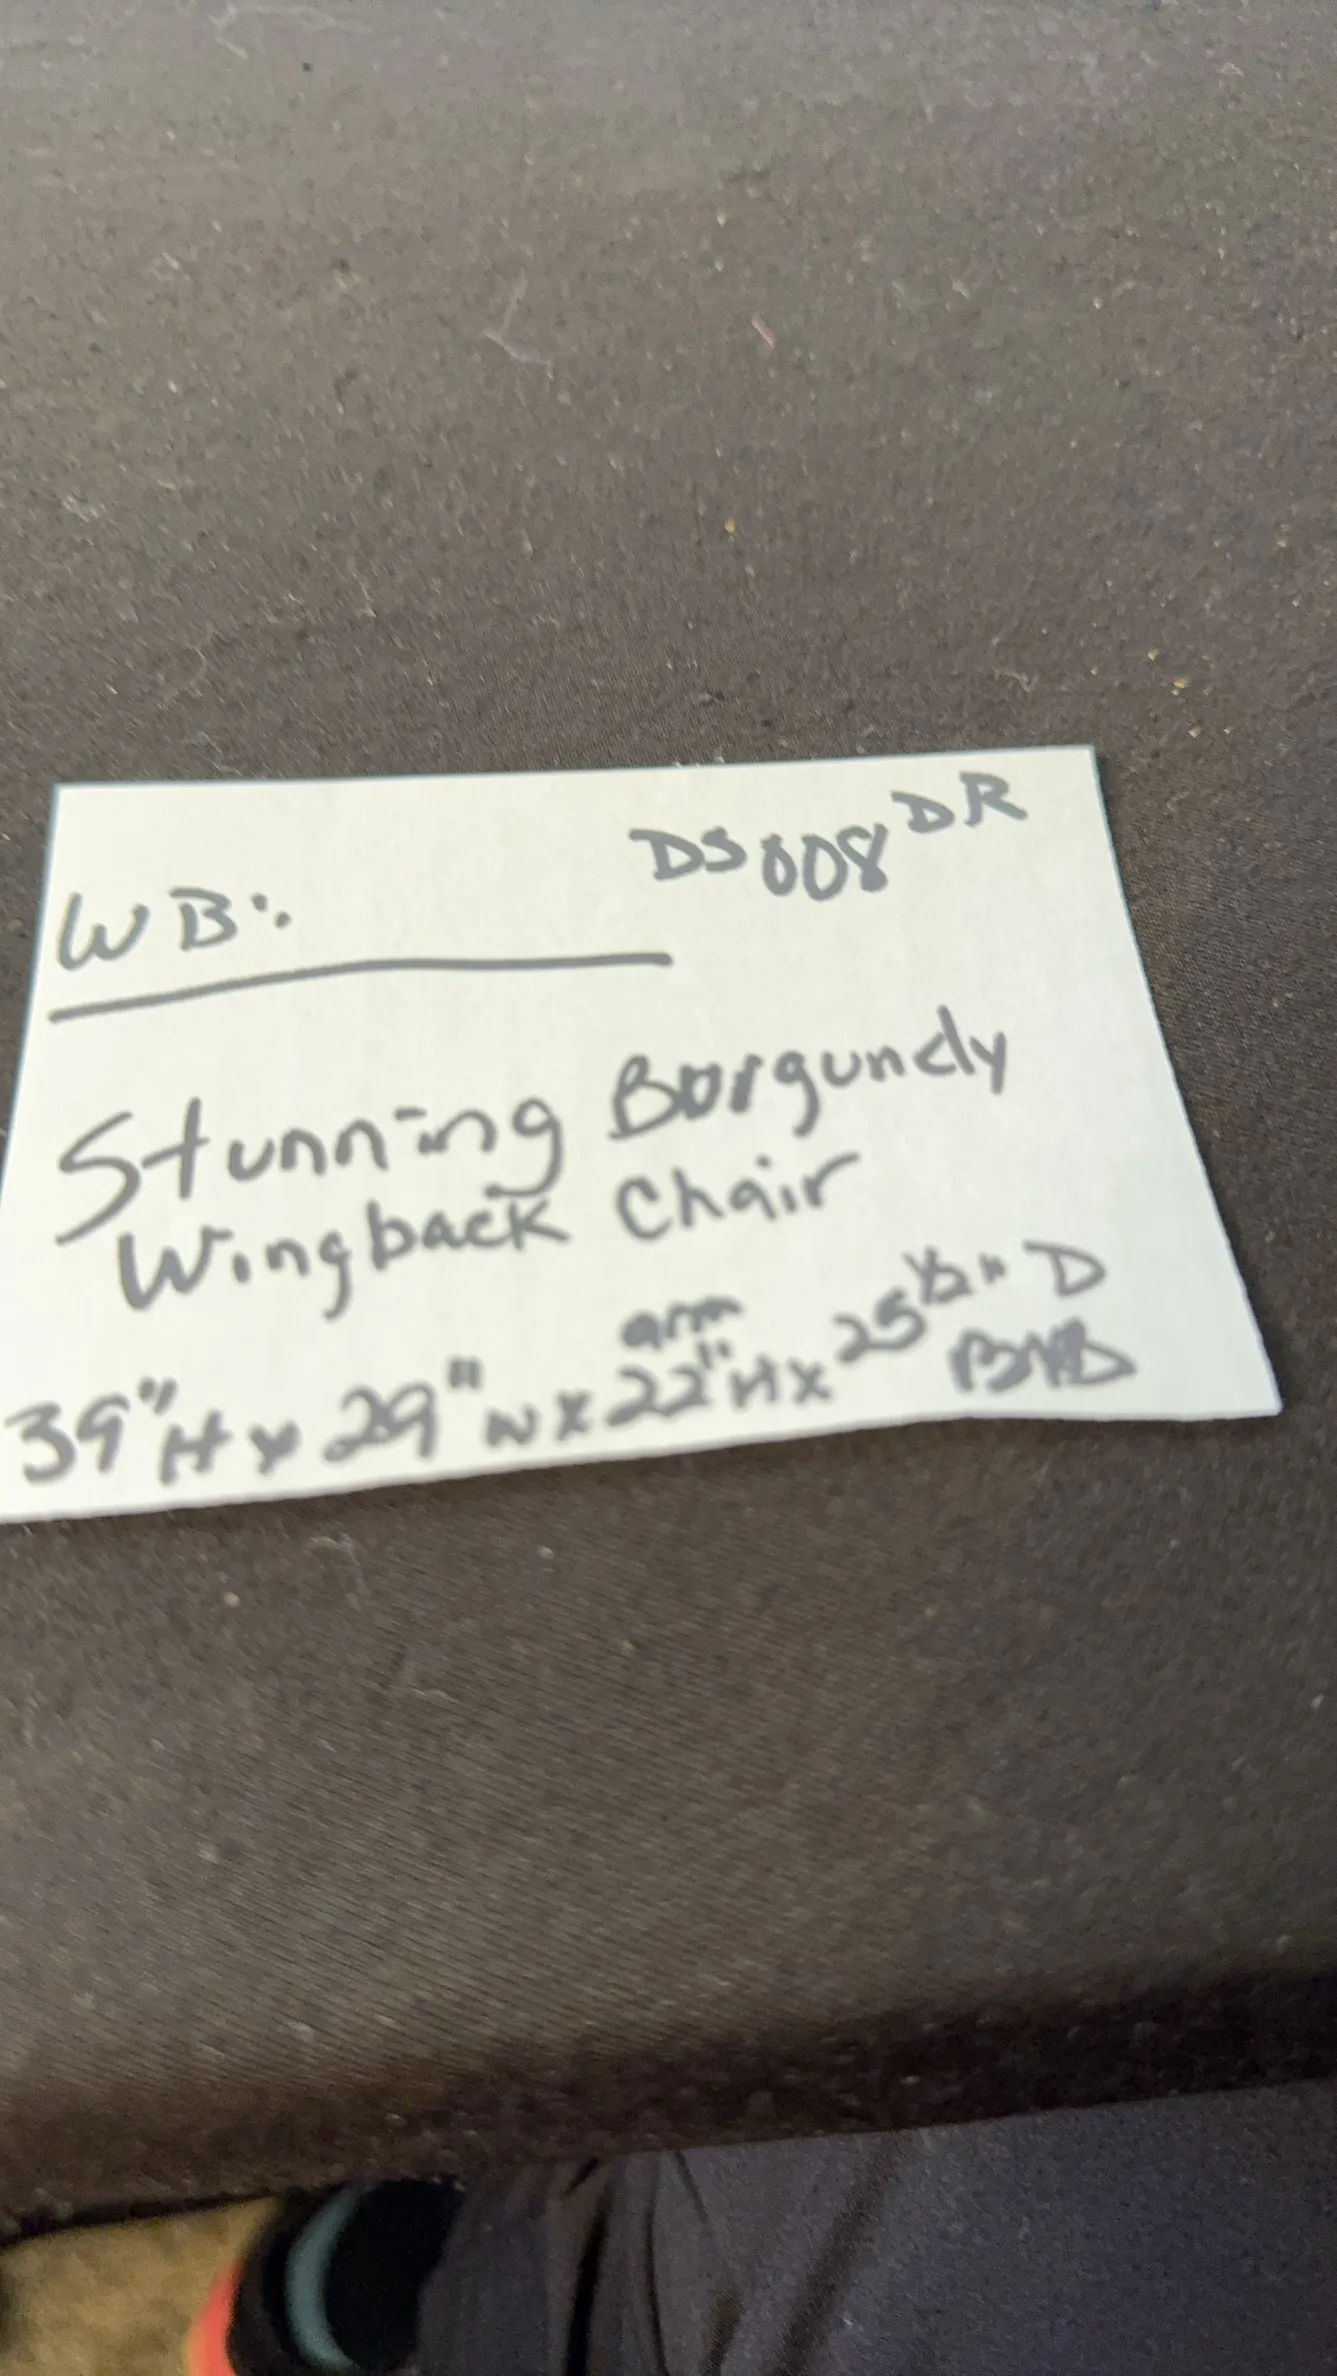 DS 008 DR
WB:
Stunning Burgundy
Wingback Chair
arm
39"H x 29"W x 22"H x 25 1/2" D